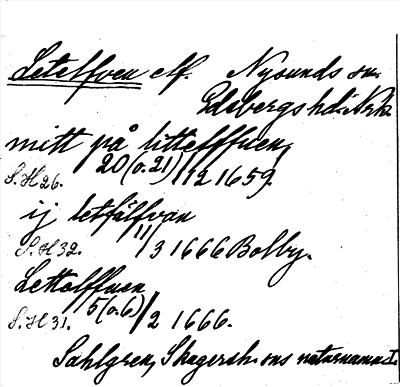 Letelfven elf. Nysunds sn.
Edsbergs hd. Nrk.
mitt på littelffuen,
S.H 26. 20 (o. 21)/12 1659.
ij letfälfvan
S.H 32. 11/3 1666 Bolby.
Lettolffuen
S.H 31. 5 (o. 6)/2 1666.
Sahlgren, Skagersh. ons naturnamn I.